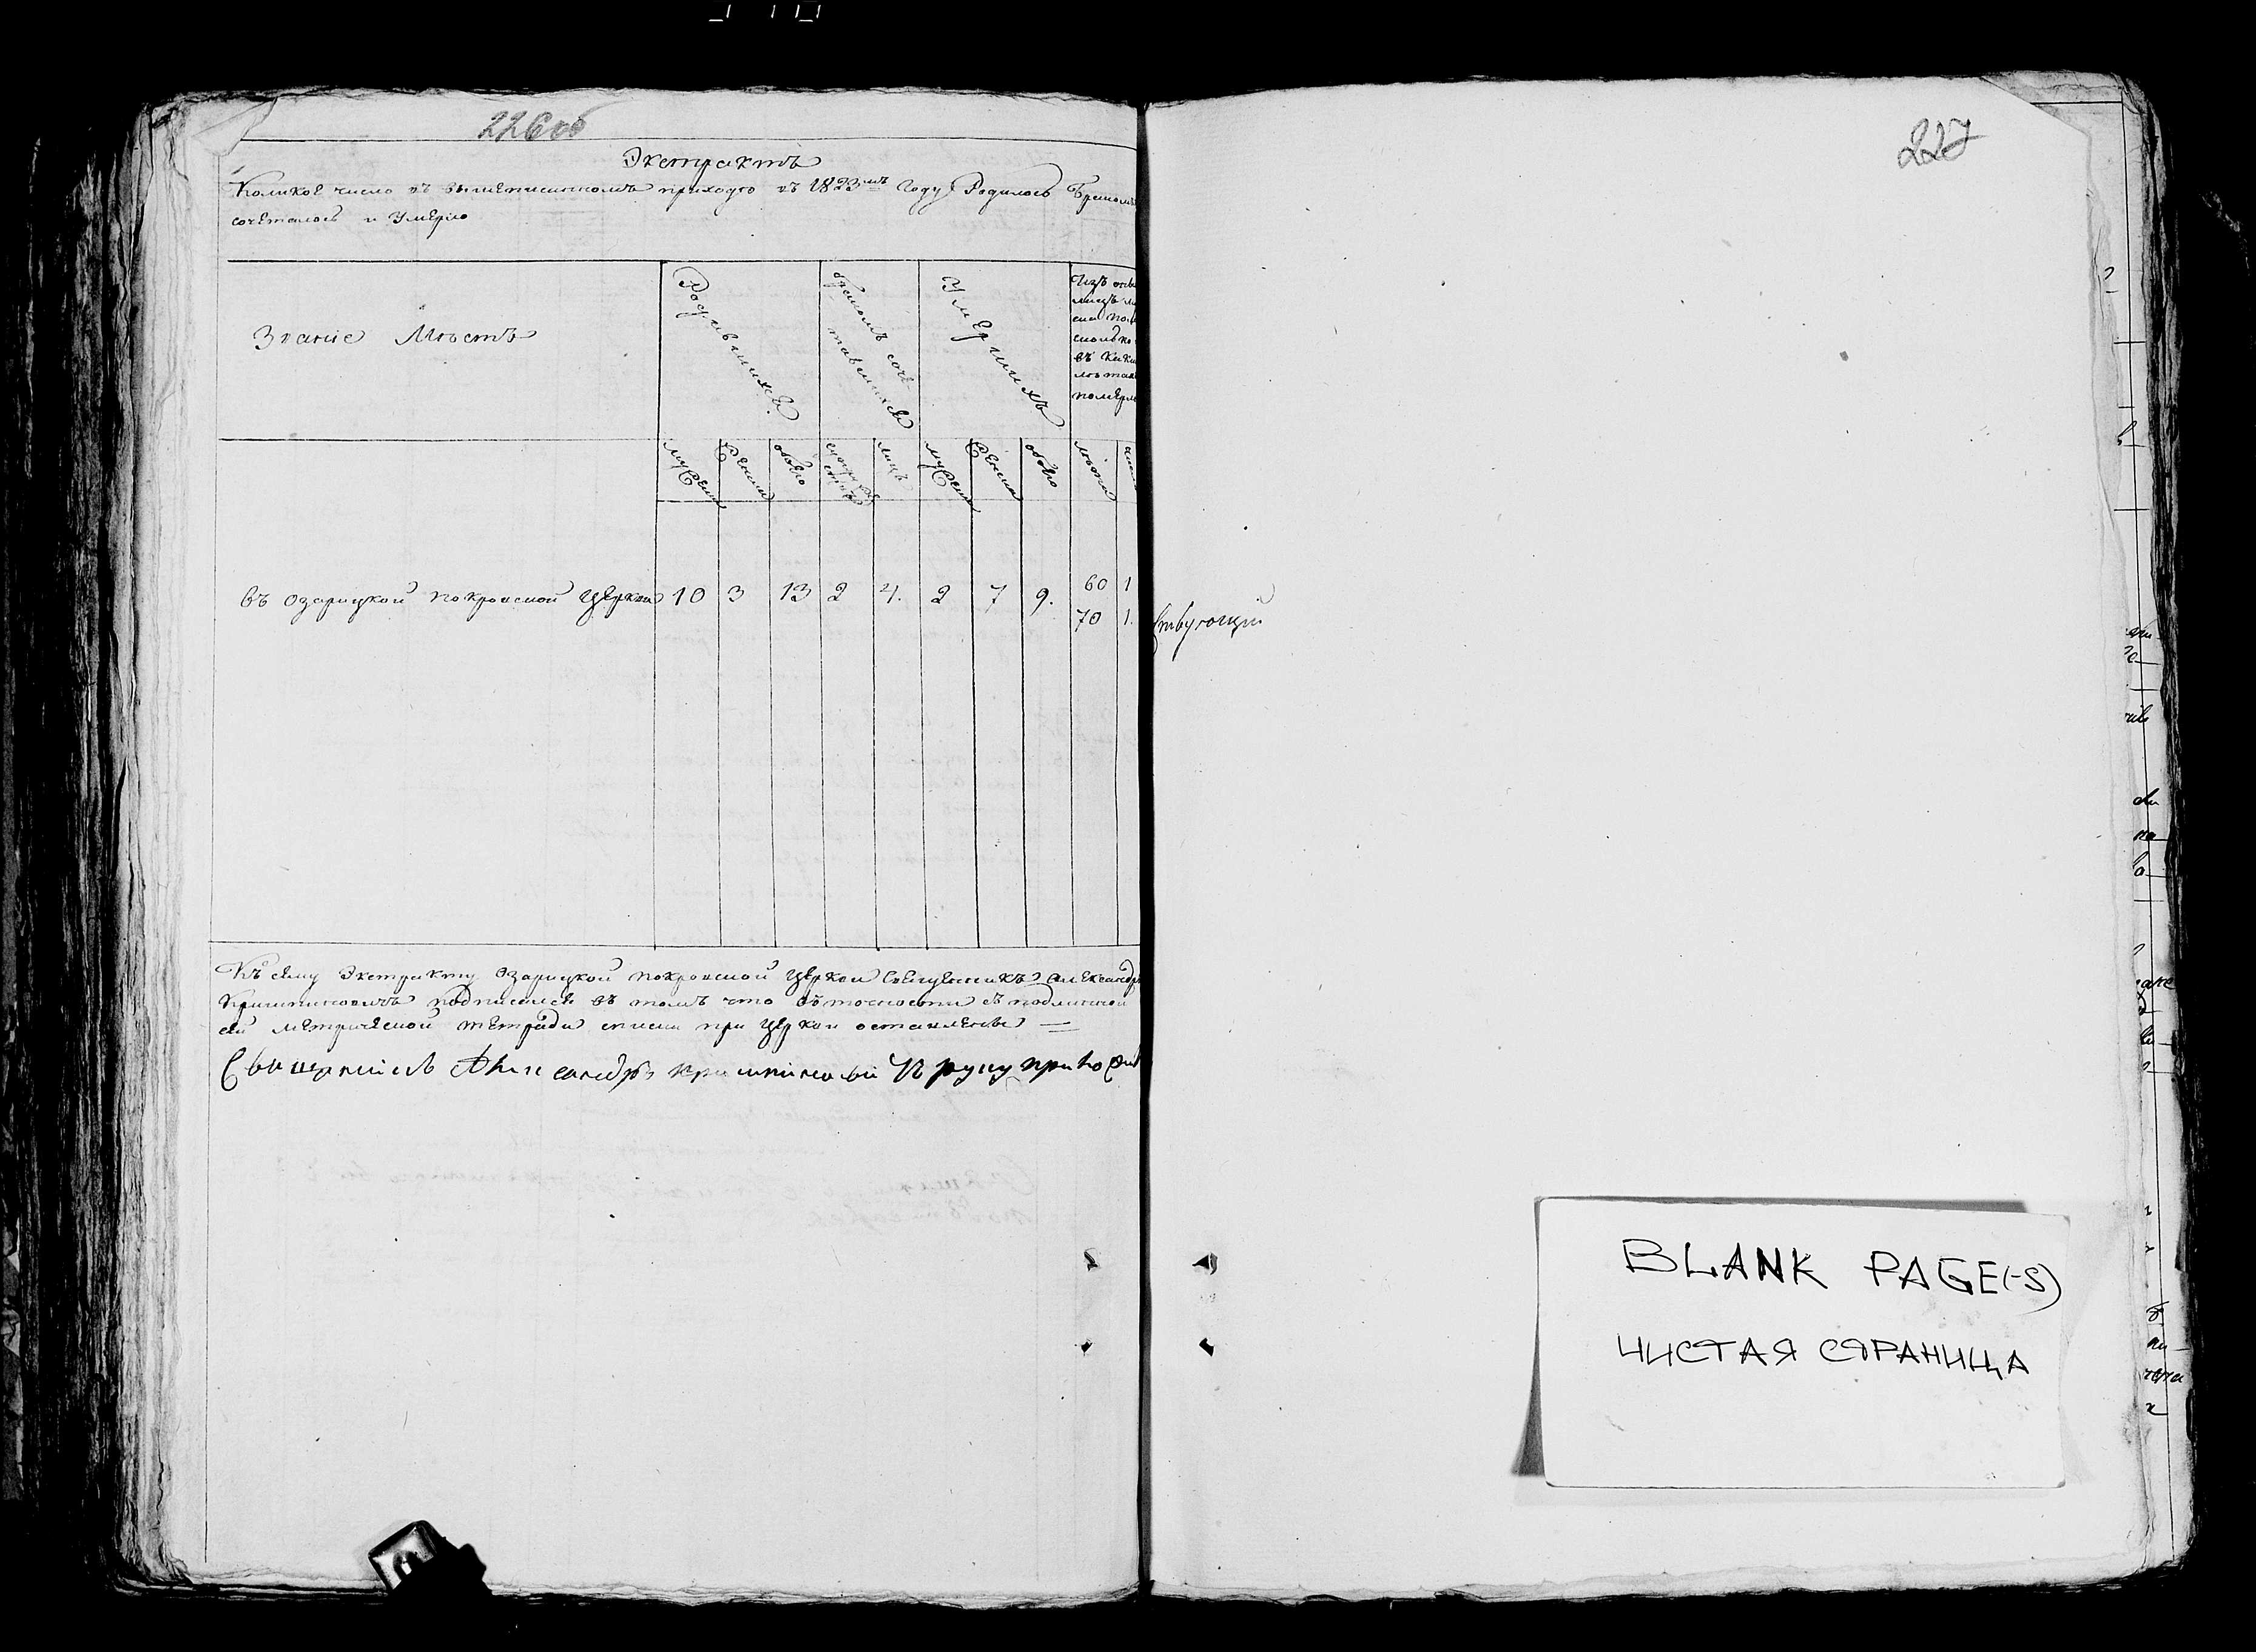 226об
Экстрактъ
Коликое число въ вышеписанномъ приходѣ въ 1823мъ Году Родилось Бракомъ
сочеталось и Умерло
Званіе Мѣстъ
Родившихся
бракомъ соче-
тавшихся
Умершихъ
Изъ
лицъ
въ
померло
мужеска
женска
обоего
лицъ
мужеска
женска
обоего
лѣта
въ Озарицкой покровской Церкви 10 3 13 2 4. 2 7 9. 60 1
70 1.
Къ сему Экстракту Озарицкой покровской Церкви Священникъ Александръ
подписался въ томъ что въ точности съ подлинной
сей метрической тетради списки при Церкви оставлены
Священникъ Александръ руку
227
ствующій
BLANK PAGE(-S)
ЧИСТАЯ СТРАНИЦА